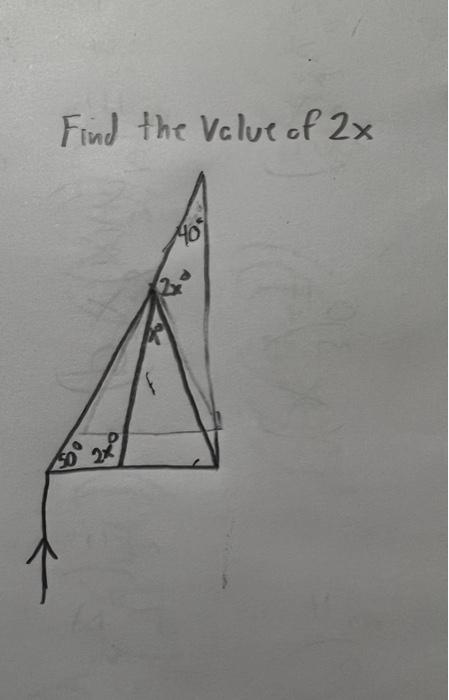 Find the Value of 2x
40°
2x°
x°
50° 2x°